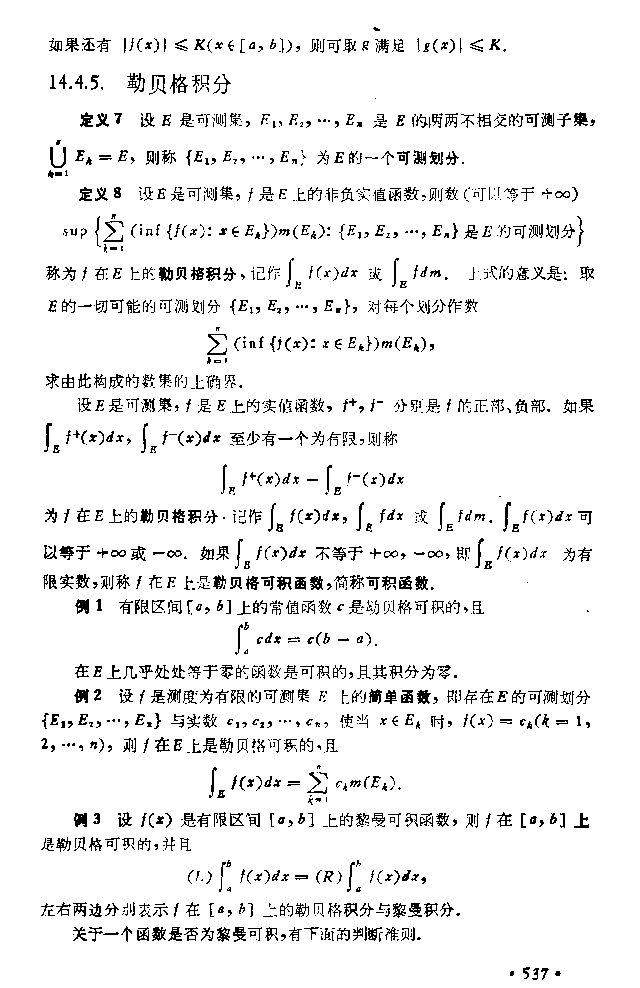 如果还有 |f(x)| ≤ K(x ∈ [a, b]), 则可取 g 满足 |g(x)| ≤ K.
14.4.5. 勒贝格积分
定义 7 设 E 是可测集, E₁, E₂, …, Eₙ 是 E 的两两不相交的可测子集,
⋃ₖ₌₁ⁿ Eₖ = E, 则称 {E₁, E₂, …, Eₙ} 为 E 的一个可测划分.
定义 8 设 E 是可测集, f 是 E 上的非负实值函数, 则数 (可以等于 +∞)
sup {∑ₖ₌₁ⁿ (inf {f(x): x ∈ Eₖ})m(Eₖ): {E₁, E₂, …, Eₙ} 是 E 的可测划分}
称为 f 在 E 上的勒贝格积分, 记作 ∫_E f(x)dx 或 ∫_E fdm. 上式的意义是: 取
E 的一切可能的可测划分 {E₁, E₂, …, Eₙ}, 对每个划分作数
∑ₖ₌₁ⁿ (inf {f(x): x ∈ Eₖ})m(Eₖ),
求由此构成的数集的上确界.
设 E 是可测集, f 是 E 上的实值函数, f⁺, f⁻ 分别是 f 的正部、负部. 如果
∫_E f⁺(x)dx, ∫_E f⁻(x)dx 至少有一个为有限, 则称
∫_E f⁺(x)dx − ∫_E f⁻(x)dx
为 f 在 E 上的勒贝格积分. 记作 ∫_E f(x)dx, ∫_E fdx 或 ∫_E fdm. ∫_E f(x)dx 可
以等于 +∞ 或 −∞. 如果 ∫_E f(x)dx 不等于 +∞, −∞, 即 ∫_E f(x)dx 为有
限实数, 则称 f 在 E 上是勒贝格可积函数, 简称可积函数.
例 1 有限区间 [a, b] 上的常值函数 c 是勒贝格可积的, 且
∫ₐᵇ cdx = c(b − a).
在 E 上几乎处处等于零的函数是可积的, 且其积分为零.
例 2 设 f 是测度为有限的可测集 E 上的简单函数, 即存在 E 的可测划分
{E₁, E₂, …, Eₙ} 与实数 c₁, c₂, …, cₙ, 使当 x ∈ Eₖ 时, f(x) = cₖ(k = 1,
2, …, n), 则 f 在 E 上是勒贝格可积的, 且
∫_E f(x)dx = ∑ₖ₌₁ⁿ cₖm(Eₖ).
例 3 设 f(x) 是有限区间 [a, b] 上的黎曼可积函数, 则 f 在 [a, b] 上
是勒贝格可积的, 并且
(L) ∫ₐᵇ f(x)dx = (R) ∫ₐᵇ f(x)dx,
左右两边分别表示 f 在 [a, b] 上的勒贝格积分与黎曼积分.
关于一个函数是否为黎曼可积, 有下面的判断准则.
• 537 •